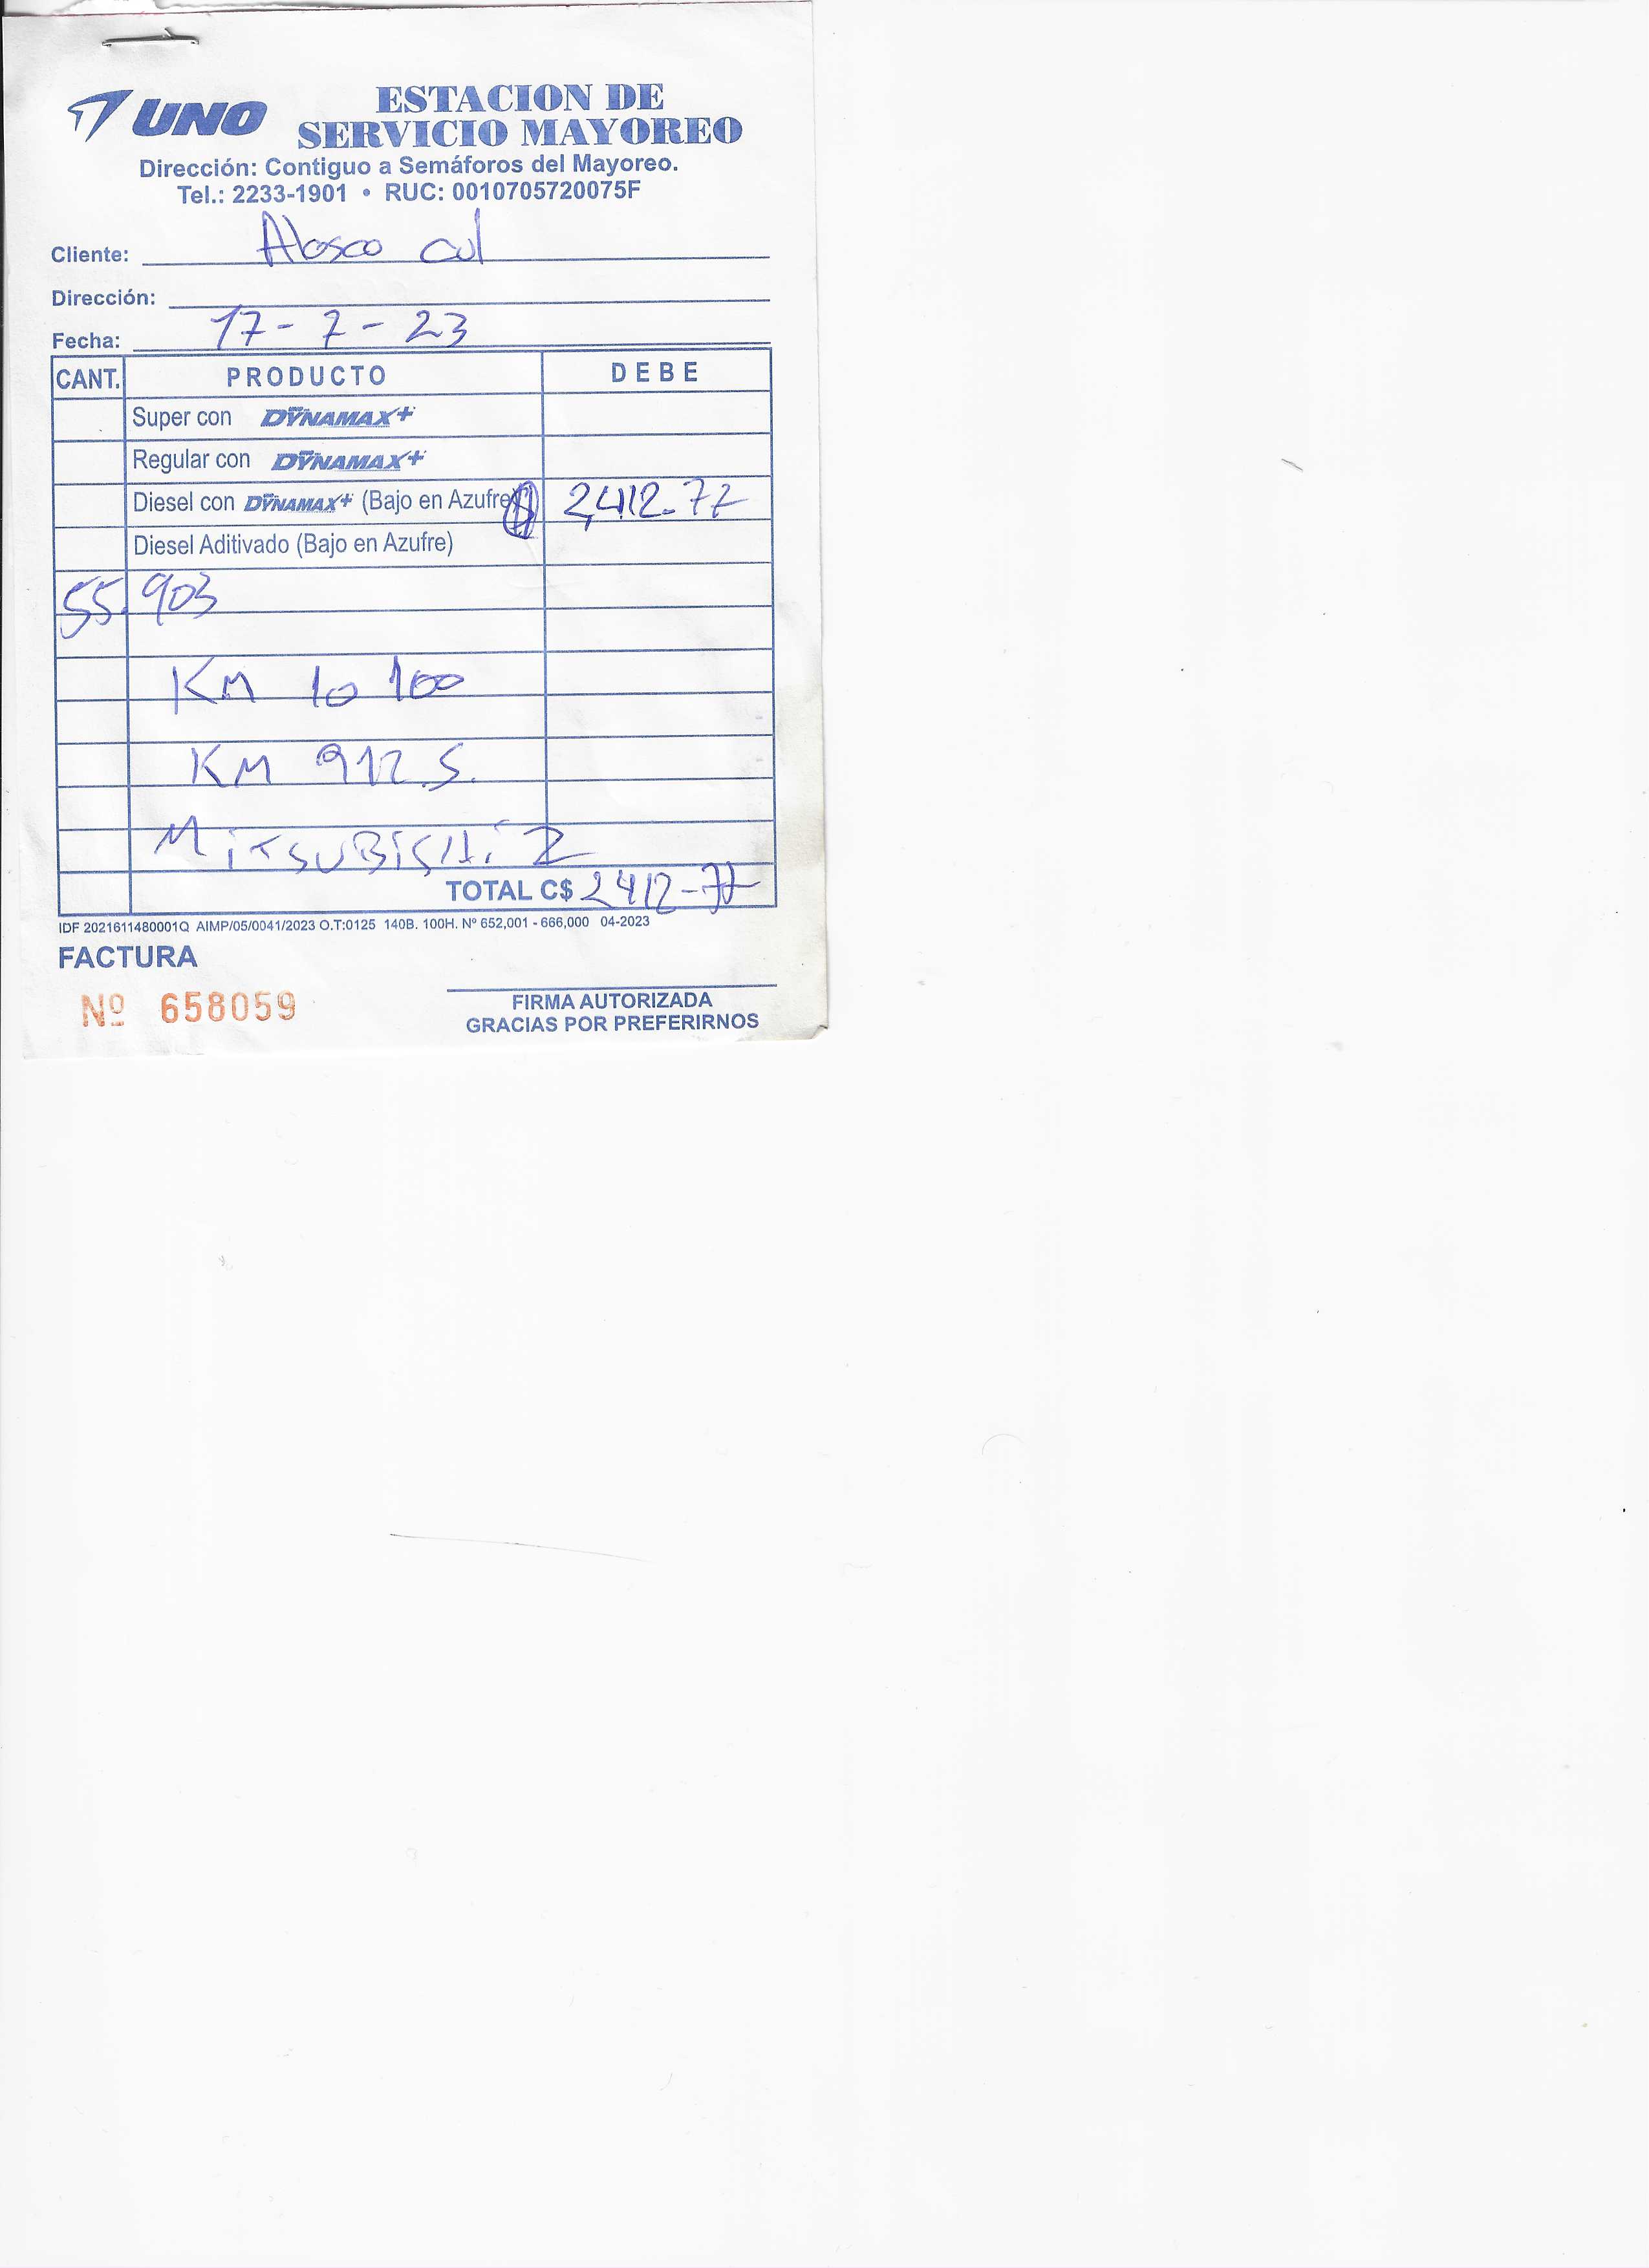 UNO
ESTACION DE
SERVICIO MAYOREO
Dirección: Contiguo a Semáforos del Mayoreo.
Tel.: 2233-1901 • RUC: 0010705720075F
Cliente:
Dirección:
Fecha: 17-7-23
CANT. PRODUCTO DEBE
Super con DYNAMAX+
Regular con DYNAMAX+
Diesel con DYNAMAX+ (Bajo en Azufre) 2,412.77
Diesel Aditivado (Bajo en Azufre)
55.903
KM 10100
KM 912.5.
MITSUBISHI 2
TOTAL C$ 2412-77
IDF 2021611480001Q AIMP/05/0041/2023 O.T:0125 140B. 100H. Nº 652,001 - 666,000 04-2023
FACTURA
Nº 658059
FIRMA AUTORIZADA
GRACIAS POR PREFERIRNOS